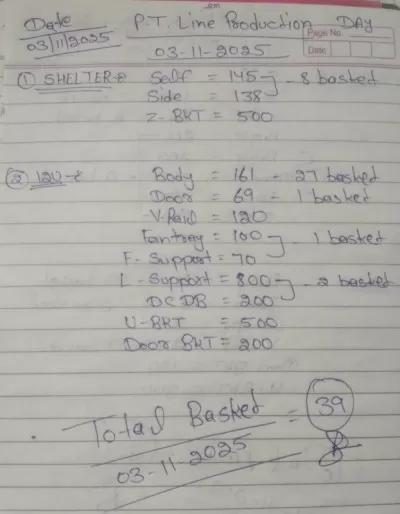 Date
03/11/2025
P.T. Line Production DAY
Page No.
Date
03-11-2025
① SHELTER → Self = 145 - 8 basked
Side = 138
Z-BKT = 500
② 12U → Body = 161 - 27 basked
Door = 69 - 1 basked
V-Raid = 120
Fantray = 100 - 1 basked
F-Support = 70
L-Support = 800 - 2 basked
DCDB = 200
U-BKT = 500
Door BKT = 200
Total Basked = 39
03-11-2025